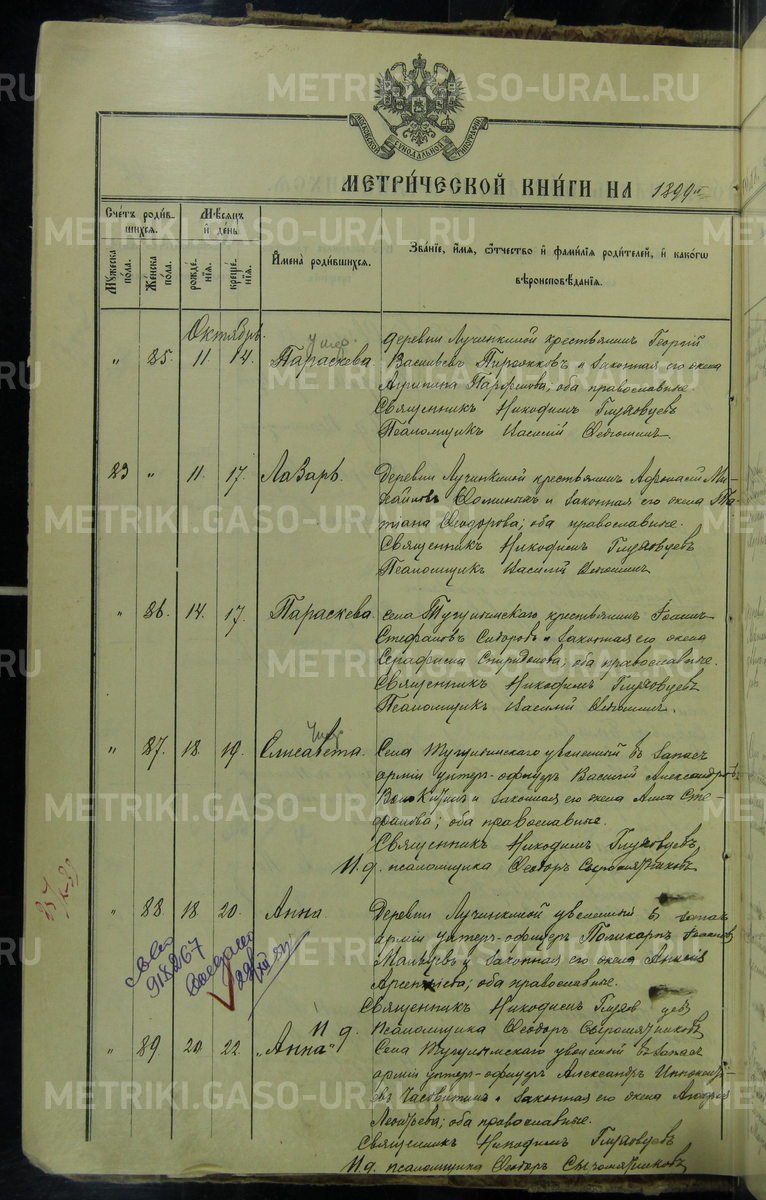 METRIKI.GASO-URAL.RU
МОСКОВСКОЙ СѴНОДАЛЬНОЙ ТИПОГРАФІИ
МЕТРИ́ЧЕСКОЙ КНИ́ГИ НА 1899 г.
Счётъ роди́вшихся.
Мѣ́сяцъ и҆ де́нь
Мꙋ́жеска по́ла.
Же́нска по́ла.
рожде́нїѧ.
креще́нїѧ.
И҆мена̀ роди́вшихся.
Зва́нїе, и҆́мѧ, ѻ҆́тчество и҆ фами́лїѧ роди́телей, и҆ како́гѡ
вѣроисповѣ́данїѧ.
Октябрь.
умер.
деревни Лучинкиной крестьянинъ Георгій
" 85. 11 14. Параскева Васильевъ и законная его жена
Агрипина Парфенова, оба православные.
Священникъ Никодимъ Глуховцевъ
Псаломщикъ Василій
23 " 11. 17. Лазарь. Деревни Лучинкиной крестьянинъ Афонасій Ми-
хайловъ Фоминыхъ и законная его жена Та-
тіана Феодорова; оба православные.
Священникъ Никодимъ Глуховцевъ
Псаломщикъ Василій
" 86. 14. 17. Параскева. села Тугулымскаго крестьянинъ Іоаннъ
Стефановъ Сидоровъ и законная его жена
Серафима Спиридонова, оба православные.
Священникъ Никодимъ Глуховцевъ
Псаломщикъ Василій
" 87. 18. 19. Елисавета. Села Тугулымскаго уволенный въ запасъ
арміи унтеръ-офицеръ Василій Александровъ
и законная его жена Анна Сте-
фанова; оба православные.
Священникъ Никодимъ Глуховцевъ
И.д. псаломщика Феодоръ Сыромятниковъ
" 88. 18. 20. Анна. Деревни Лучинкиной уволенный въ запасъ
арміи унтеръ-офицеръ Поликарпъ Іоанновъ
Мальцевъ и законная его жена
оба православные.
Священникъ Никодимъ Глуховцевъ
И д. Псаломщика Феодоръ Сыромятниковъ
918267
" 89. 20. 22. „Анна" Села Тугулымскаго уволенный въ запасъ
арміи унтеръ-офицеръ Александръ
и законная его жена
Леонтьева; оба православные.
Священникъ Никодимъ Глуховцевъ
И.д. псаломщика Феодоръ Сыромятниковъ